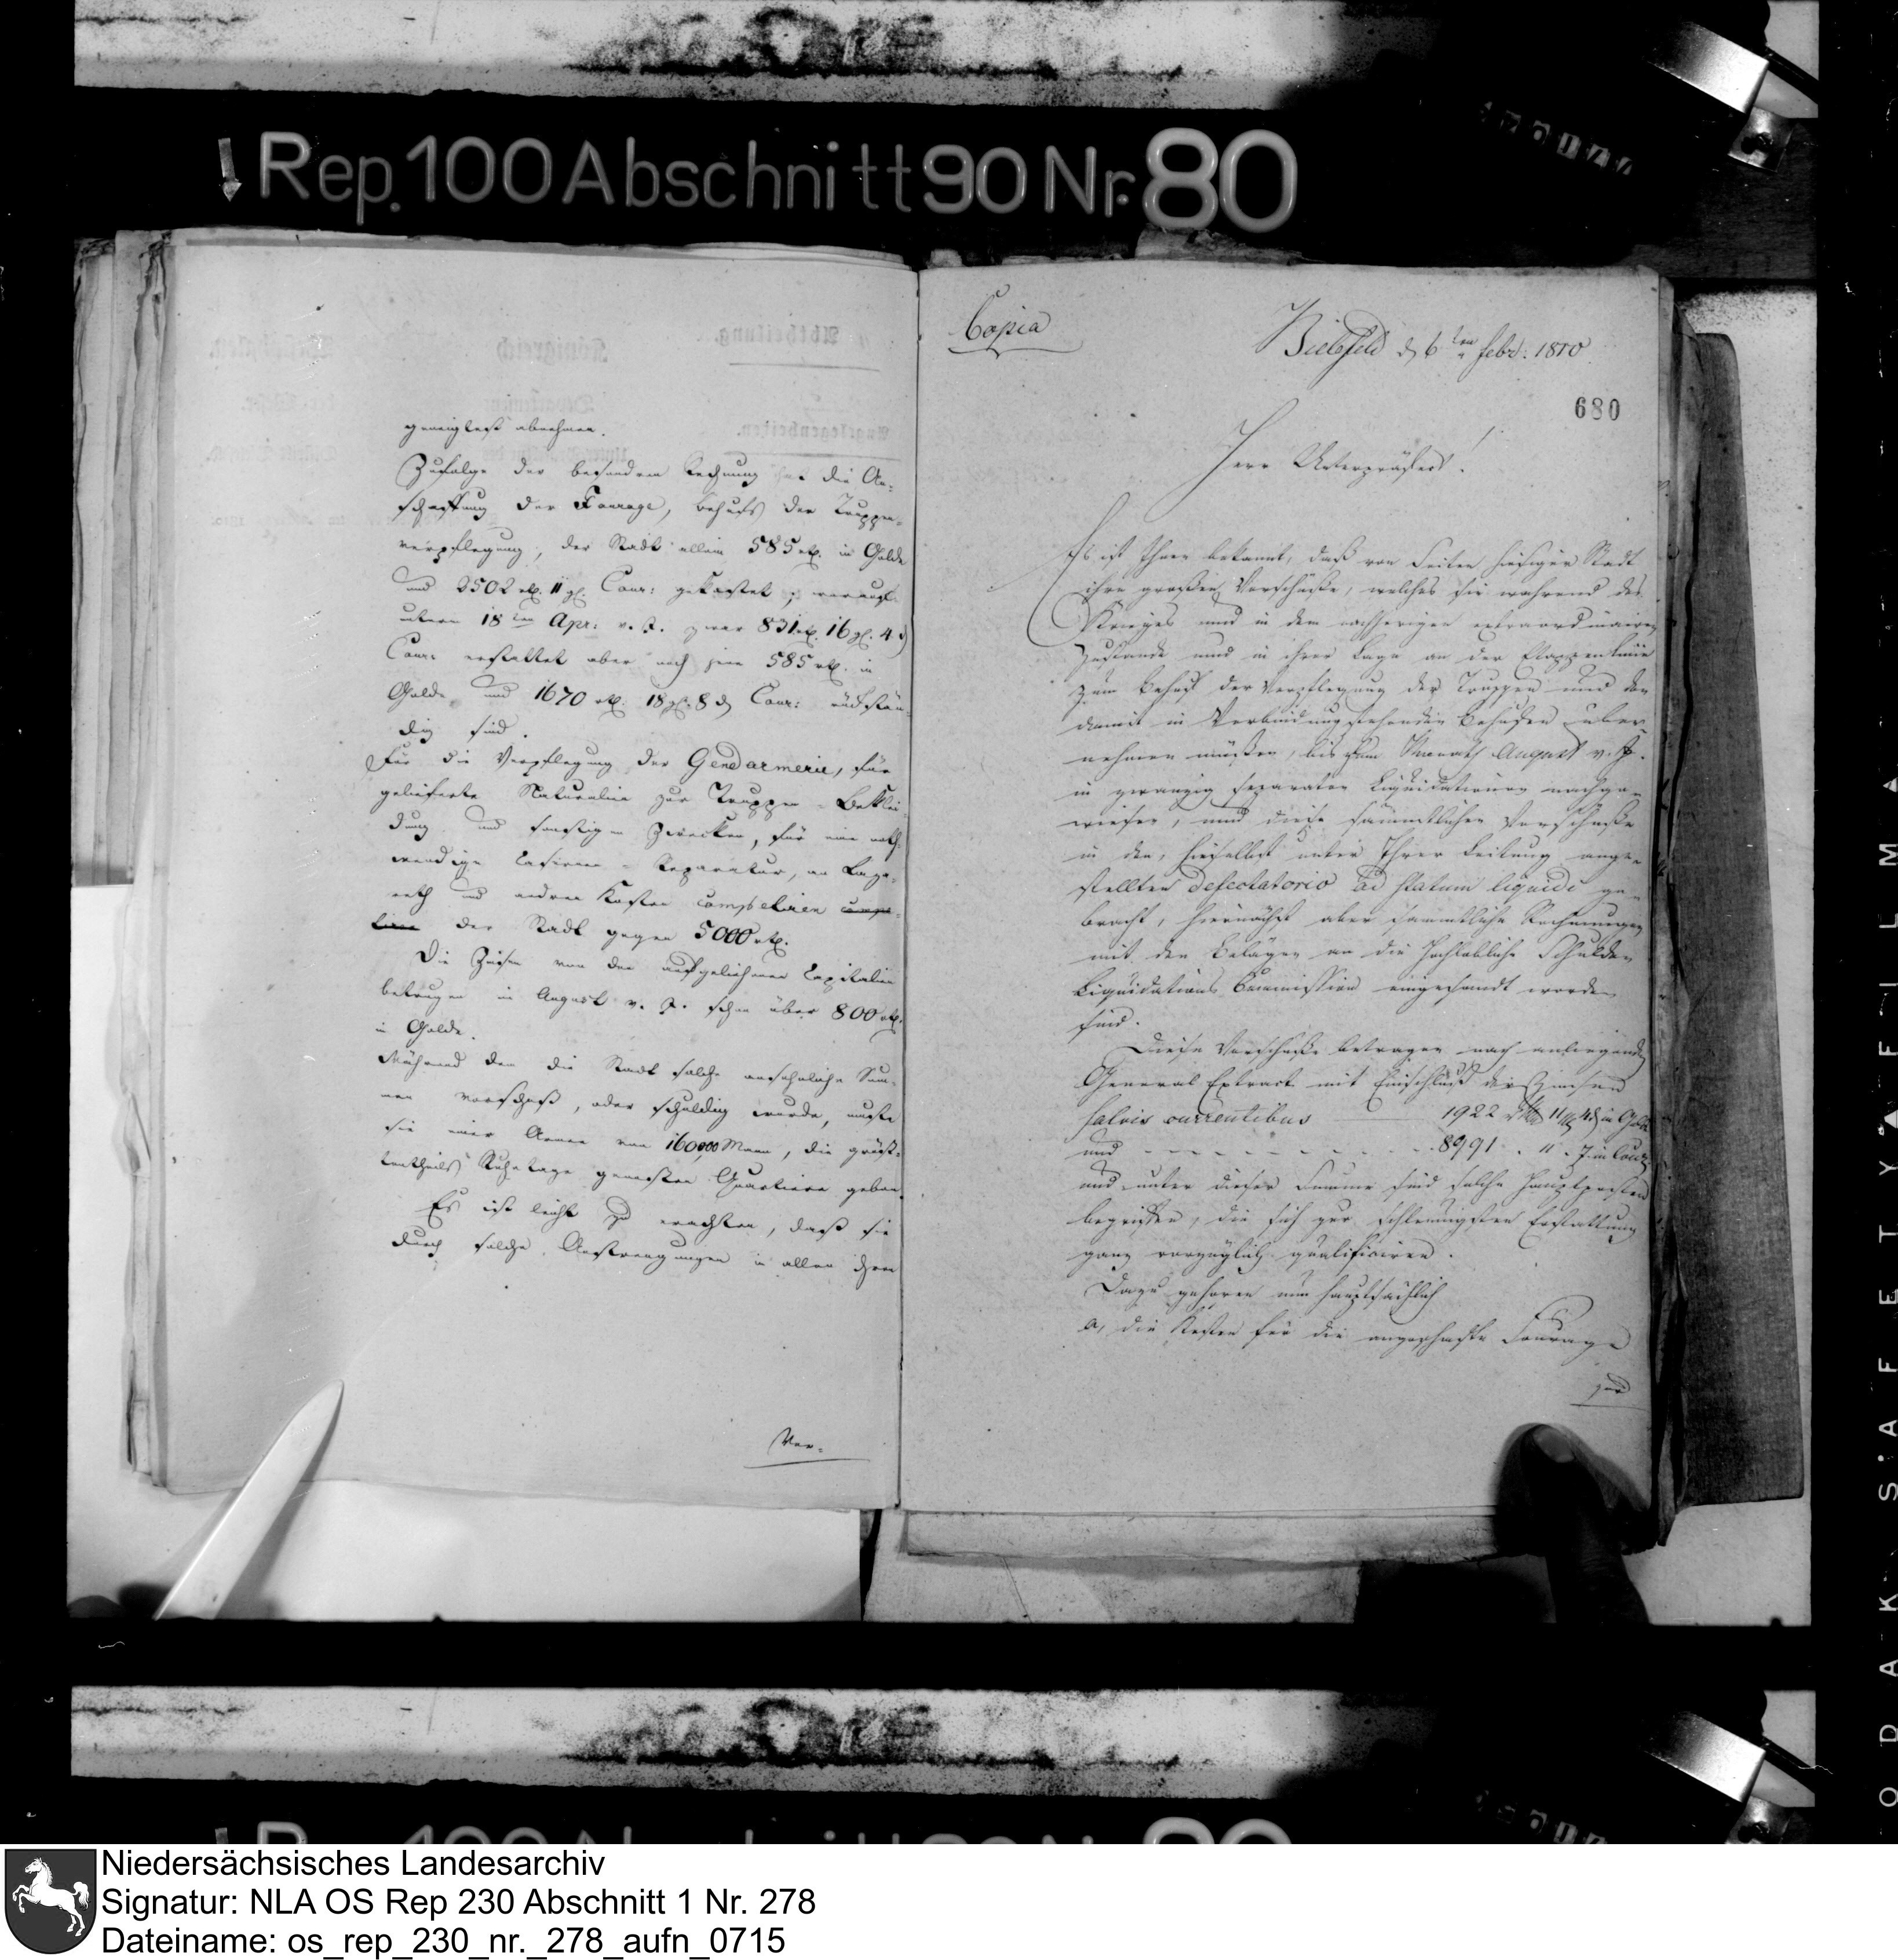 Rep. 100 Abschnitt 90 Nr. 80
geneigtest abnehmen.
Zufolge der besondren Rechnung hat die An-
schaffung der Fourage, behufs der Truppen-
verpflegung, der Stadt allein 585 rtl. in Golde
und 2502 rtl. 11 gl. Cour: gekostet,
unterm 18ten Apr: v. J. zwar 831 rtl. 16 gl. 4 d
Cour: erstattet aber noch jene 585 rtl. in
Golde und 1670 rtl. 18 gl. 8 d Cour: rückstän-
dig sind.
Für die Verpflegung der Gendarmerie, für
gelieferte Naturalien zur Truppen-Beklei-
dung und sonstigen Zwecken, für eine noth-
wendige Casernen-Reparatur, an Laza-
reth und andren Kosten competiren compe-
tiren der Stadt gegen 5000 rtl.
Die Zinsen von den aufgeliehenen Capitalien
betrugen in August v. J. schon über 800 rtl.
in Golde.
Während dem die Stadt solche ansehnliche Sum-
men vorschoß, oder schuldig wurde, mußte
sie einer Armee von 160,000 Mann, die größ-
tentheils Ruhetage genossen Quartiere geben.
Es ist leicht zu erachten, daß sie
durch solche Anstrengungen in allen ihren
Ver-
Copia
Bielefeld d 6ten Febr: 1810
680
Herr Unterpräfect!
Es ist Ihnen bekannt, daß von Seiten hiesiger Stadt
ihre großen Vorschüße, welches sie während des
Krieges und in dem nachherigen extraordinairen
Zustande und in ihrer Lage an der Etappenlinie
zum Behuf der Verpflegung der Truppen und den
damit in Verbindung stehenden Behufen über-
nehmen müßen, bis zum Monath August v. J.
in zwanzig separaten Liquidationen nachge-
wiesen, und diese sämmtlichen Vorschüße
in dem, hieselbst unter Ihrer Leitung ange-
stellten Defectatorio ad statum liquidi ge-
bracht, hiernächst aber sämmtliche Rechnungen
mit den Belägen an die Hochlöbliche Schulden
Liquidations Commission eingesandt worden
sind.
Diese Vorschüße betragen nach anliegenden
General Extract mit Einschluß der Zinsen
salvis currentibus 1922 rtl 11 gl 4 d in Golde
und - - - - - - - - - 8991 . 11 . 7 in Cour
und unter dieser Summe sind solche Hauptposten
begriffen, die sich zur schleunigsten Erstattung
ganz vorzüglich qualificiren.
Dazu gehören nun hauptsächlich
a, die Kosten für die angeschaffte Fourage
zur
KODAK SAFETY FILM
Niedersächsisches Landesarchiv
Signatur: NLA OS Rep 230 Abschnitt 1 Nr. 278
Dateiname: os_rep_230_nr._278_aufn_0715